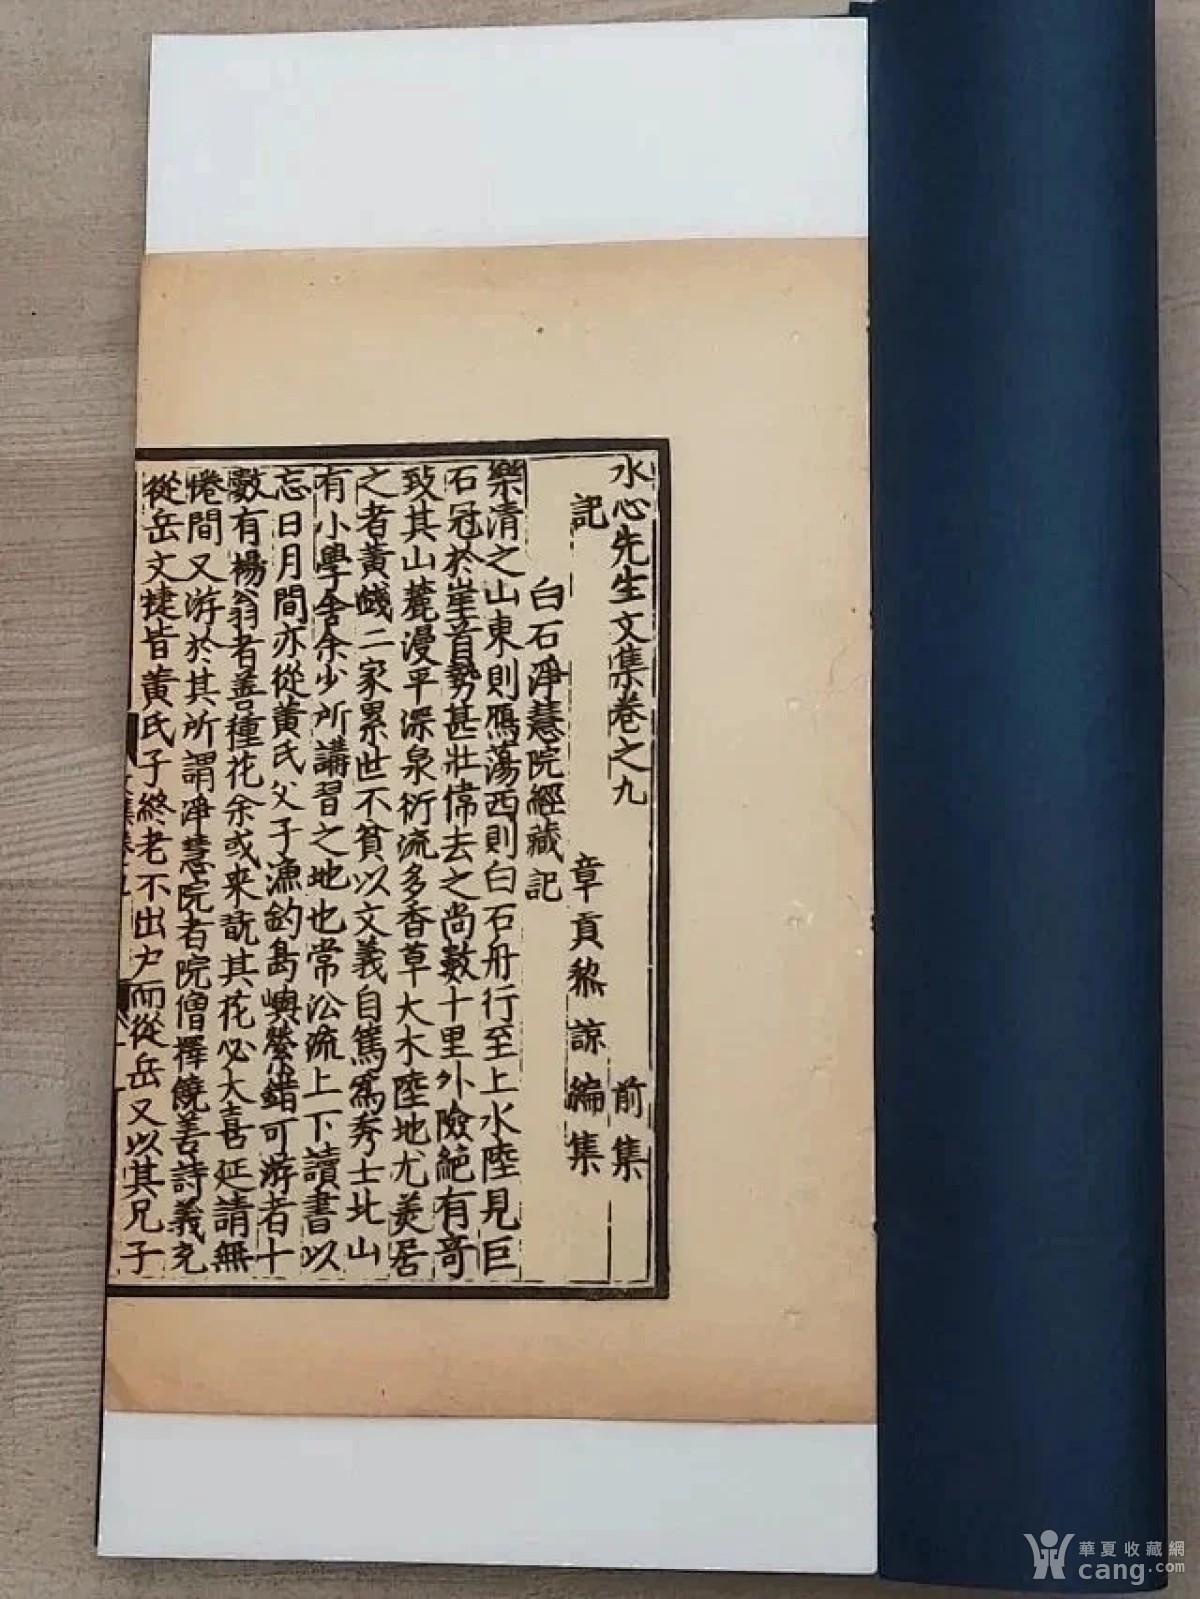 水心先生文集卷之九 前集
記 章貢黎諒編集
白石淨慧院經藏記
樂清之山東則鴈蕩西則白石舟行至上水陸見巨
石冠於崖首勢甚壯偉去之尚數十里外險絕有奇
致其山麓漫平深泉衍流多香草大木陸地尤美居
之者黃錢二家累世不貧以文義自篤爲秀士北山
有小學舍余少所講習之地也常沿流上下讀書以
忘日月間亦從黃氏父子漁釣島嶼縈錯可游者十
數有楊翁者善種花余或来翫其花必大喜延請無
倦間又游於其所謂淨慧院者院僧擇饒善詩義充
從岳文捷皆黃氏子終老不出户而從岳又以其兄子
華夏收藏網
cang.com